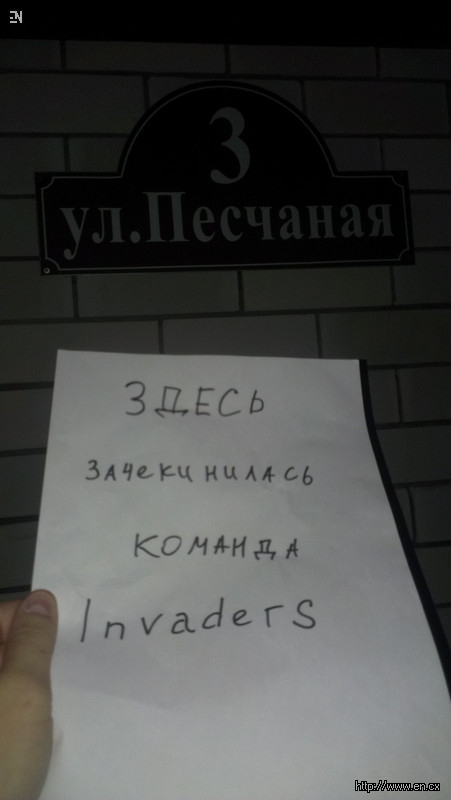 EN
3
ул.Песчаная
ЗДЕСЬ
ЗАЧЕКИНИЛАСЬ
КОМАНДА
Invaders
http://www.en.cx